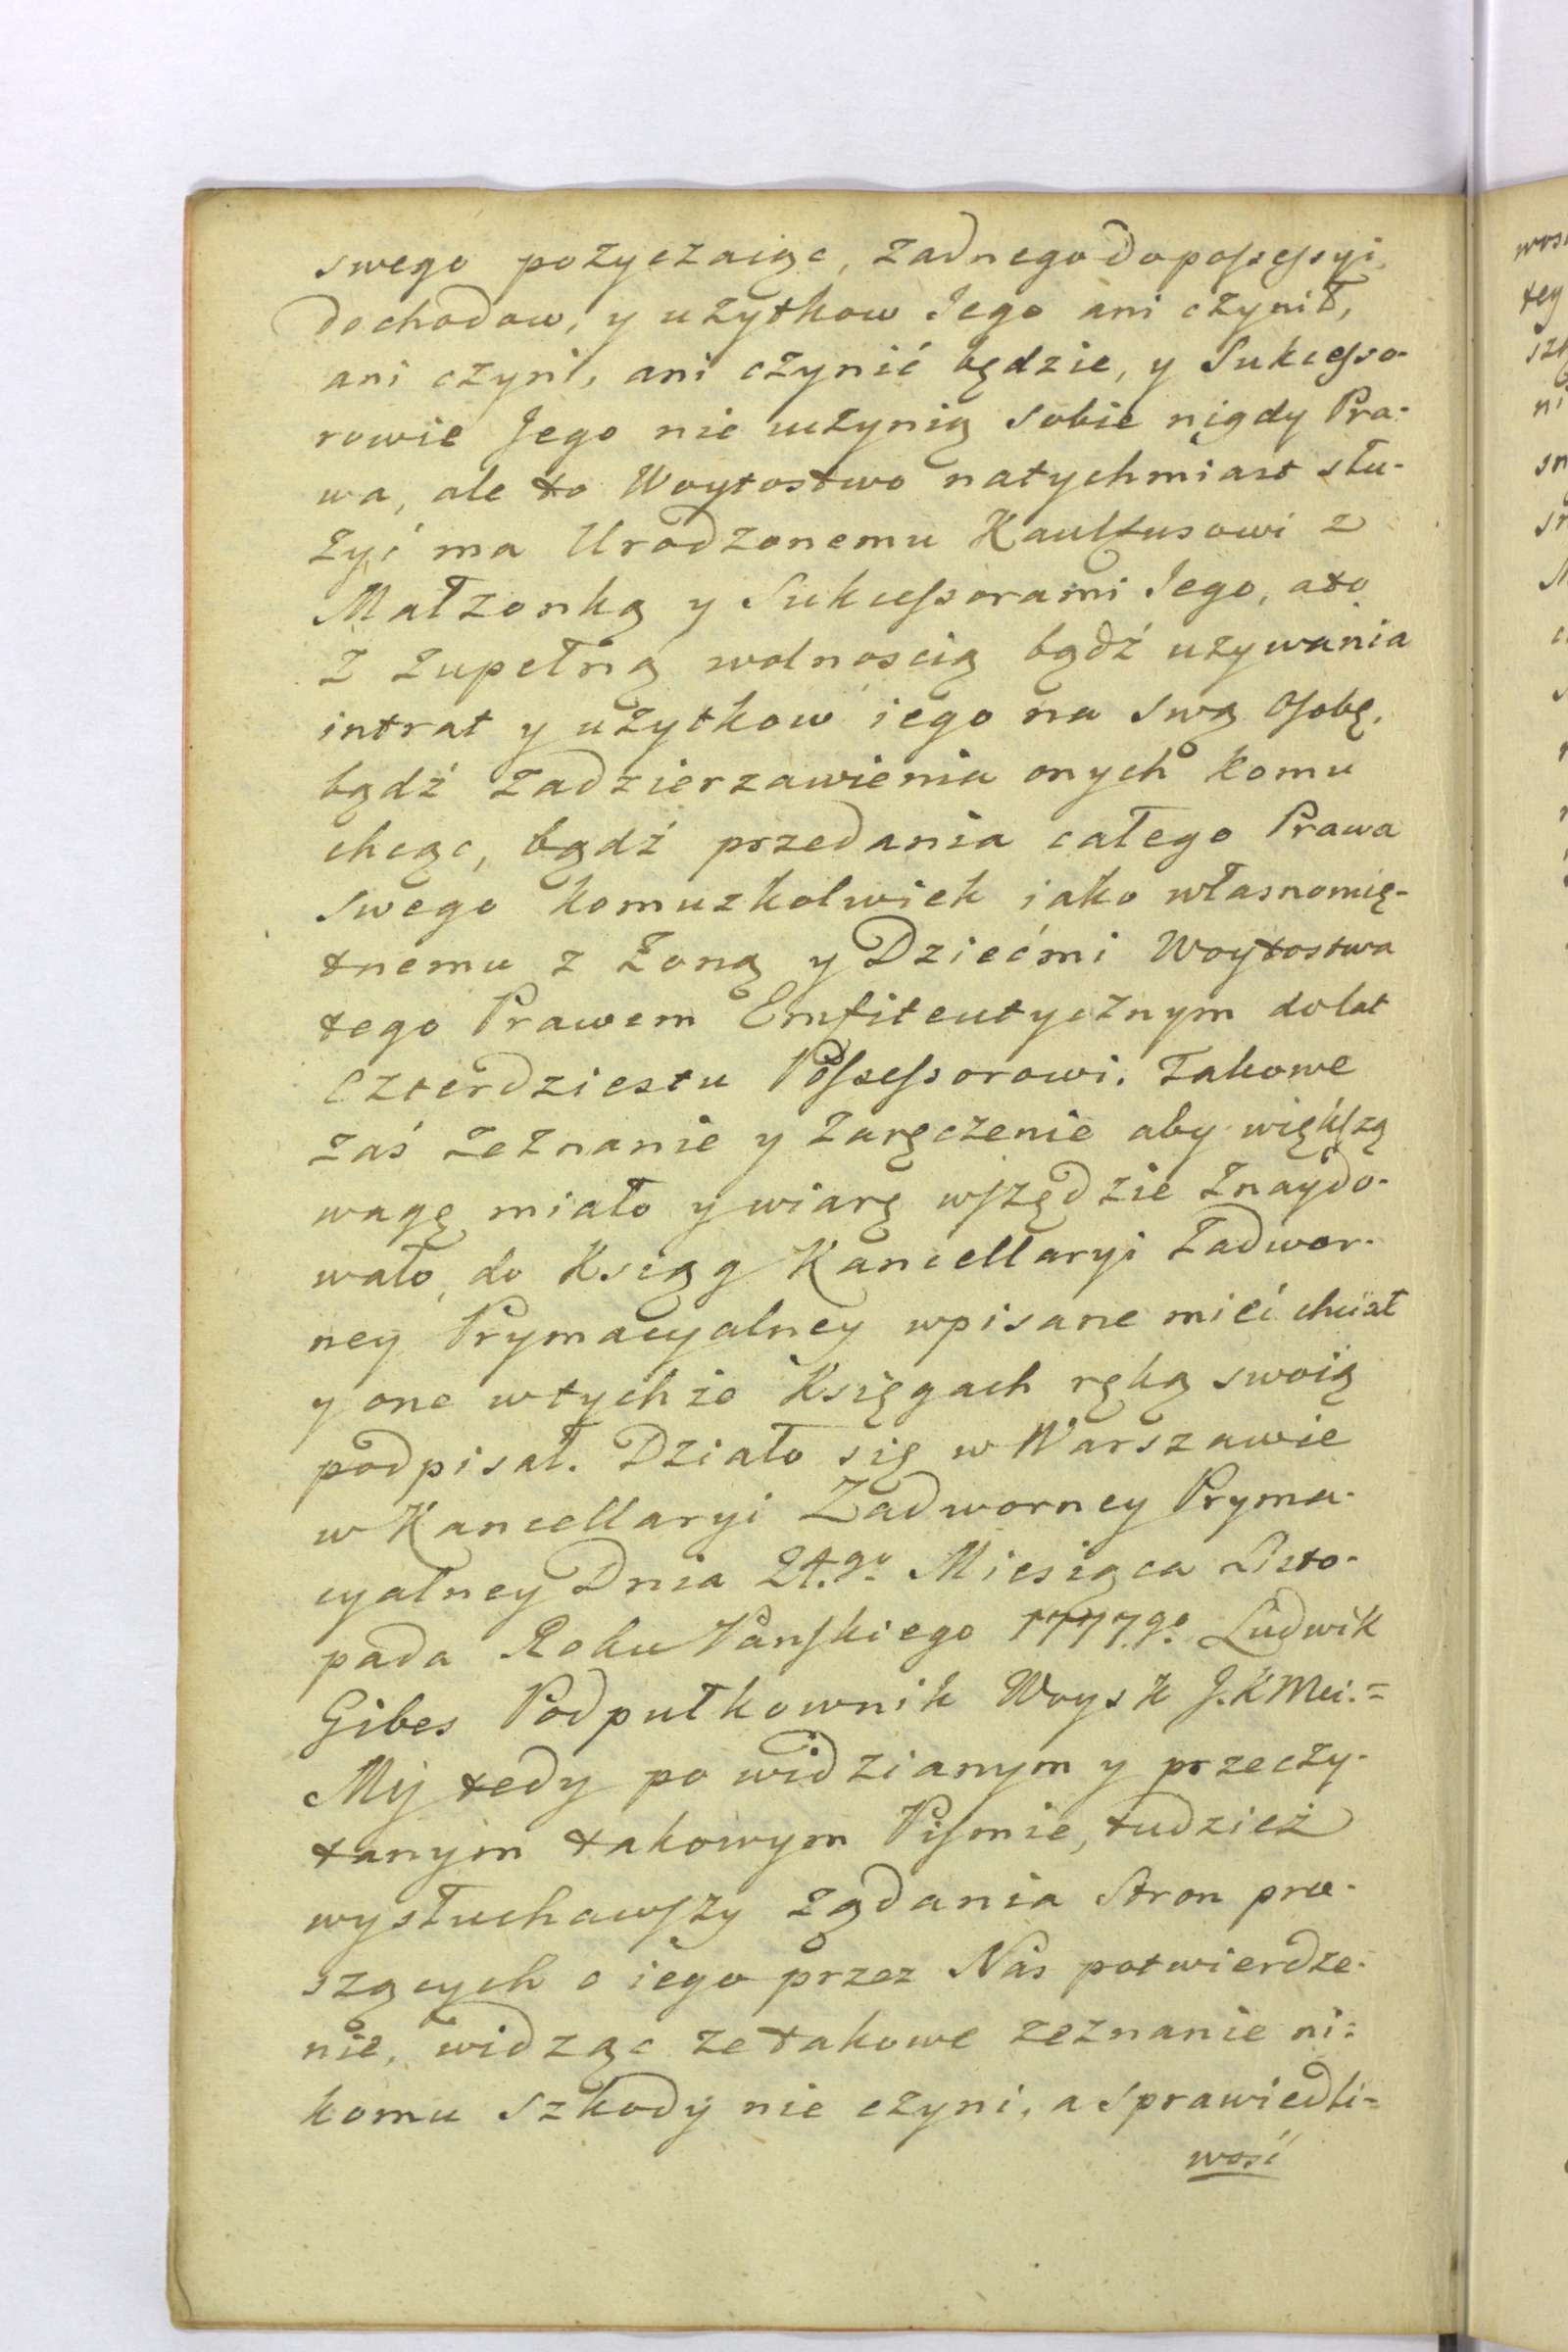 swego pożyczaiąc, żadnego do possessyi,
dochodow, y użytkow Jego ani czynił,
ani czyni, ani czynić będzie, y Sukcesso-
rowie Jego nie uczynią sobie nigdy Pra-
wa, ale to Woytostwo natychmiast słu-
żyć ma Urodzonemu Kaulfusowi z
Małżonką y Sukcessorami Jego, a to
z zupełną wolnoscią bądź uzywania
intrat y użytkow iego na swą osobę,
bądź zadzierzawienia onych komu
chcąc, bądź przedania całego Prawa
swego komuzkolwiek iako własnomię-
tnemu z Żoną y Dziećmi Woytostwa
tego Prawem Emfiteutycznym do lat
Czterdziestu Possessorowi. Takowe
zaś zeznanie y zaręczenie aby większą
wagę miało y wiarę wszędzie znaydo-
wało, do Ksiąg Kancellaryi Zadwor-
ney Prymacyalney wpisane mieć chciał
y one w tychże Księgach ręką swoią
podpisał. Działo się w Warszawie
w Kancellaryi Zadworney Pryma-
cyalney Dnia 24.go Miesiąca Listo-
pada Roku Pańskiego 1777.go Ludwik
Gibes Podpułkownik Woysk J.K Mci.=
My tedy po widzianym y przeczy-
tanym takowym Piśmie, tudzież
wysłuchawszy żądania Stron pro-
szących o iego przez Nas potwierdze-
nie, widząc ze takowe zeznanie ni-
komu szkody nie czyni, a sprawiedli=
wość